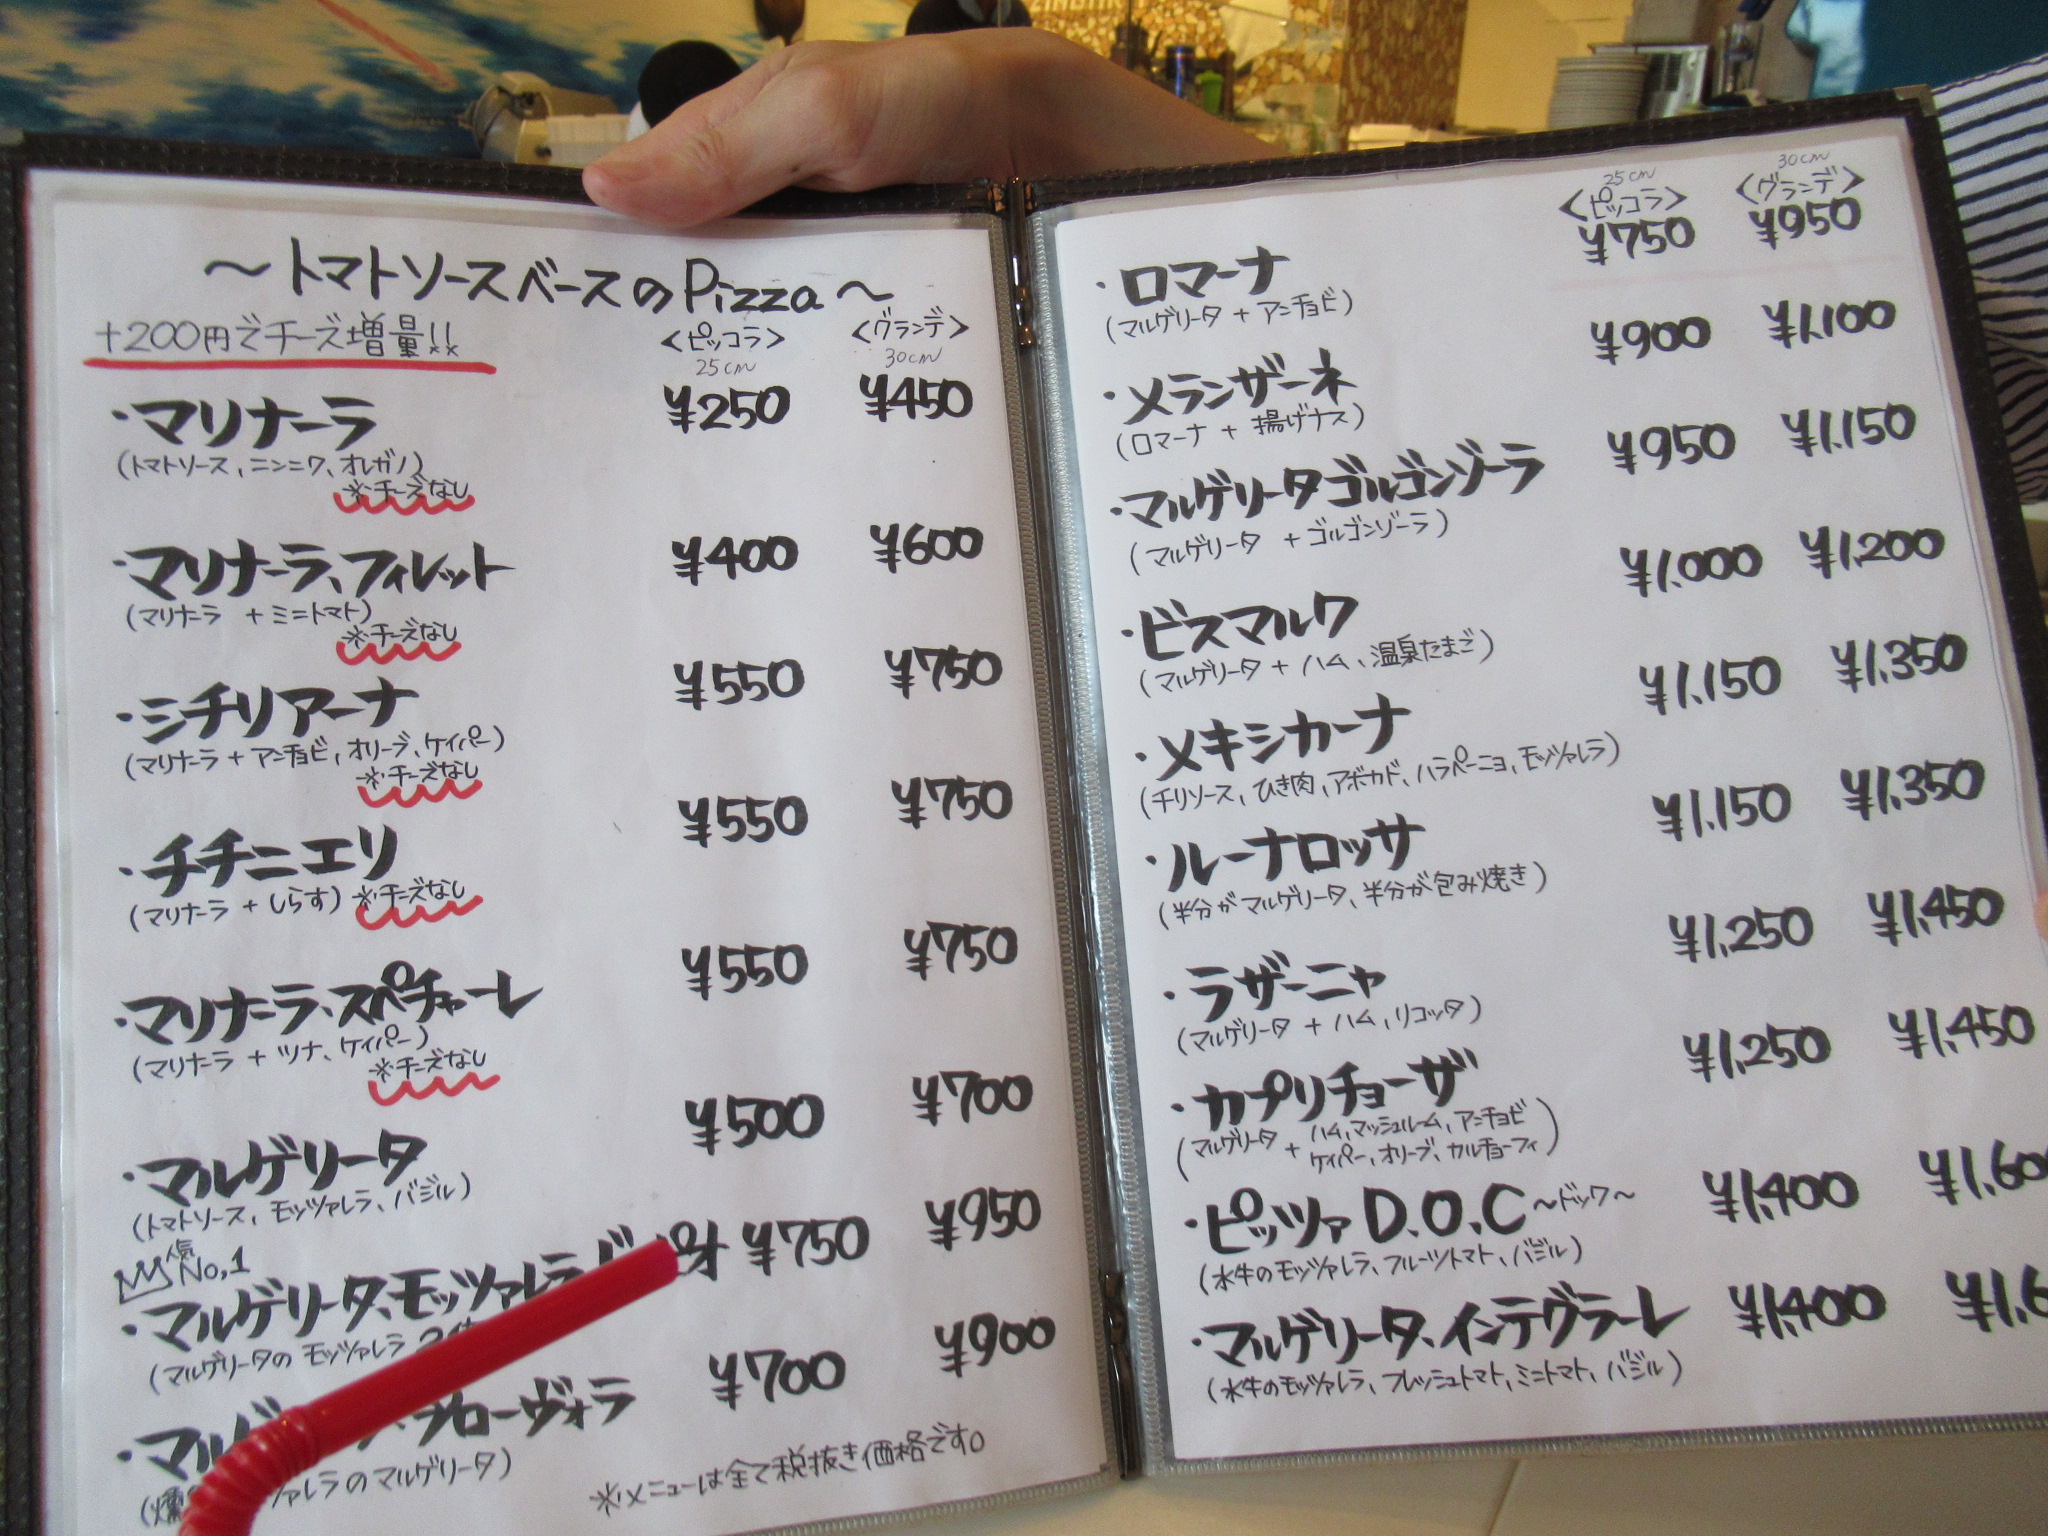 ～トマトソースベースのPizza～
+200円でチーズ増量!!
<ピッコラ> <グランデ>
25cm 30cm
・マリナーラ ¥250 ¥450
(トマトソース、ニンニク、オレガノ)
※チーズなし
・マリナーラ、フィレット ¥400 ¥600
(マリナーラ +ミニトマト)
※チーズなし
・シチリアーナ ¥550 ¥750
(マリナーラ+アンチョビ、オリーブ、ケイパー)
※チーズなし
・チチニエリ ¥550 ¥750
(マリナーラ +しらす) ※チーズなし
・マリナーラ、スペチャーレ ¥550 ¥750
(マリナーラ + ツナ、ケイパー)
※チーズなし
・マルゲリータ ¥500 ¥700
(トマトソース、モッツァレラ、バジル)
人気No,1
・マルゲリータ、モッツァレラ ¥750 ¥950
(マルゲリータのモッツァレラ
・マル ローヴォラ ¥700 ¥900
ァレラのマルゲリータ)
※メニューは全て税抜き価格です。
25cm 30cm
<ピッコラ> <グランデ>
・ロマーナ ¥750 ¥950
(マルゲリータ + アンチョビ)
・メランザーネ ¥900 ¥1,100
(ロマーナ + 揚げナス)
・マルゲリータゴルゴンゾーラ ¥950 ¥1,150
(マルゲリータ +ゴルゴンゾーラ)
・ビスマルク ¥1,000 ¥1,200
(マルゲリータ+ ハム、温泉たまご)
・メキシカーナ ¥1,150 ¥1,350
(チリソース、ひき肉、アボカド、ハラペーニョ、モッツァレラ)
・ルーナロッサ ¥1,150 ¥1,350
(半分がマルゲリータ、半分が包み焼き)
・ラザーニャ ¥1,250 ¥1,450
(マルゲリータ + ハム、リコッタ)
・カプリチョーザ ¥1,250 ¥1,450
(マルゲリータ + ハム、マッシュルーム、アンチョビ
ケイパー、オリーブ、カルチョーフィ)
・ピッツァ D.O.C ～ドック～ ¥1,400 ¥1,60
(水牛のモッツァレラ、フルーツトマト、バジル)
・マルゲリータ、インテグラーレ ¥1,400 ¥1,6
(水牛のモッツァレラ、フレッシュトマト、ミニトマト、バジル)